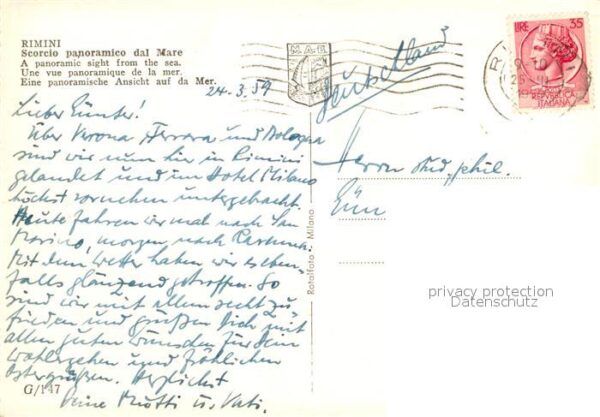 RIMINI
Scorcio panoramico dal Mare
A panoramic sight from the sea.
Une vue panoramique de la mer.
Eine panoramische Ansicht auf da Mer.
24.3.59
Lieber Günter!
Über Verona, Ferrara und Bologna
sind wir nun hier in Rimini
gelandet und im Hotel Milano
höchst vornehm untergebracht.
Heute fahren wir mal nach San
Marino, morgen nach Ravenna.
Mit dem Wetter haben wir es eben-
falls glänzend getroffen. So
sind wir mit allem recht zu-
frieden und grüßen Dich mit
allen guten Wünschen für Dein
Wohlergehen und fröhlichen
Ostergrüßen. Herzlichst
Deine Mutti u. Vati.
G/147
Rotalfoto - Milano
Deutschland
Herrn stud. phil.
LIRE 35
REPVBBLICA
ITALIANA
privacy protection
Datenschutz